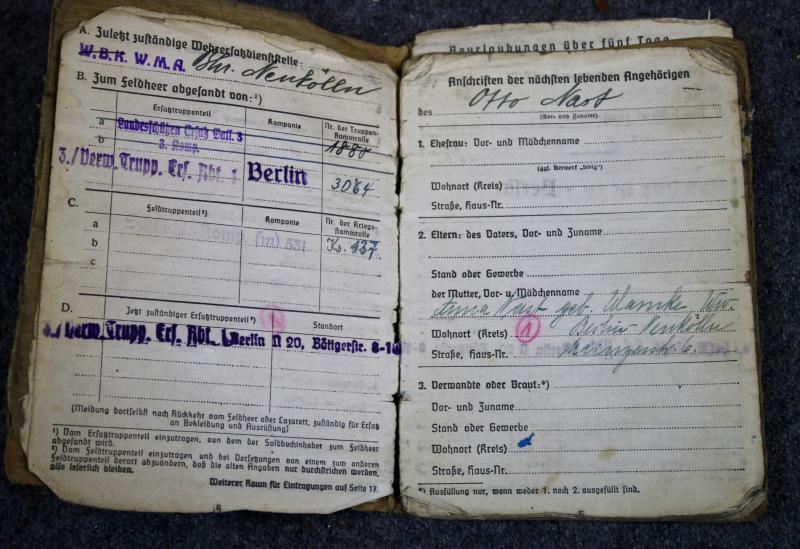 A. Zuletzt zuständige Wehrersatzdienststelle:
W.B.K. W.M.A. Bln. Neukölln
B. Zum Feldheer abgesandt von:¹)
Ersatztruppenteil
Kompanie
Nr. der Truppen-
stammrolle
a Landesschützen Ersatz Batl. 3
3. Komp.
1880
b 3./Verw. Trupp. Ers. Abt. 1 Berlin
3064
C.
Feldtruppenteil²)
Kompanie
Nr. der Kriegs-
stammrolle
a
b
Komp. (m) 531
437
c
D.
Jetzt zuständiger Ersatztruppenteil²)
Standort
3./Verw. Trupp. Ers. Abt. 1 Berlin N 20, Böttgerstr.
(Meldung dortselbst nach Rückkehr vom Feldheer oder Lazarett, zuständig für Ersatz
an Bekleidung und Ausrüstung)
¹) Vom Ersatztruppenteil einzutragen, von dem der Soldbuchinhaber zum Feldheer
abgesandt wird.
²) Vom Feldtruppenteil einzutragen und bei Versetzungen von einem zum anderen
Feldtruppenteil derart abzuändern, daß die alten Angaben nur durchstrichen werden,
also leserlich bleiben.
Weiterer Raum für Eintragungen auf Seite 17.
4
Beurlaubungen über fünf Tage
Anschriften der nächsten lebenden Angehörigen
des Otto Nast
(Vor- und Zuname)
1. Ehefrau: Vor- und Mädchenname
(ggf. Vermerk „ledig“)
Wohnort (Kreis)
Straße, Haus-Nr.
2. Eltern: des Vaters, Vor- und Zuname
Stand oder Gewerbe
der Mutter, Vor- u. Mädchenname
Anna Nast geb.
Wohnort (Kreis) 1 Berlin Neukölln
Straße, Haus-Nr. 6.
3. Verwandte oder Braut:*)
Vor- und Zuname
Stand oder Gewerbe
Wohnort (Kreis)
Straße, Haus-Nr.
*) Ausfüllung nur, wenn weder 1. noch 2. ausgefüllt sind.
5